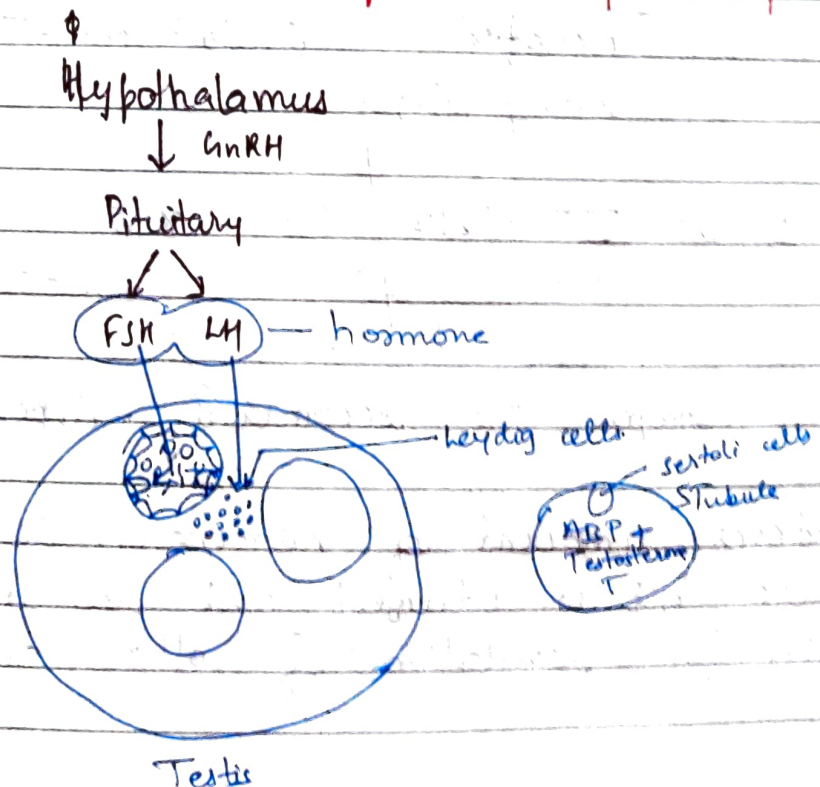 Hypothalamus
GnRH
Pituitary
FSH LH — hormone
Leydig cells
sertoli cells
STubule
ABP +
Testosterone
T
Testis